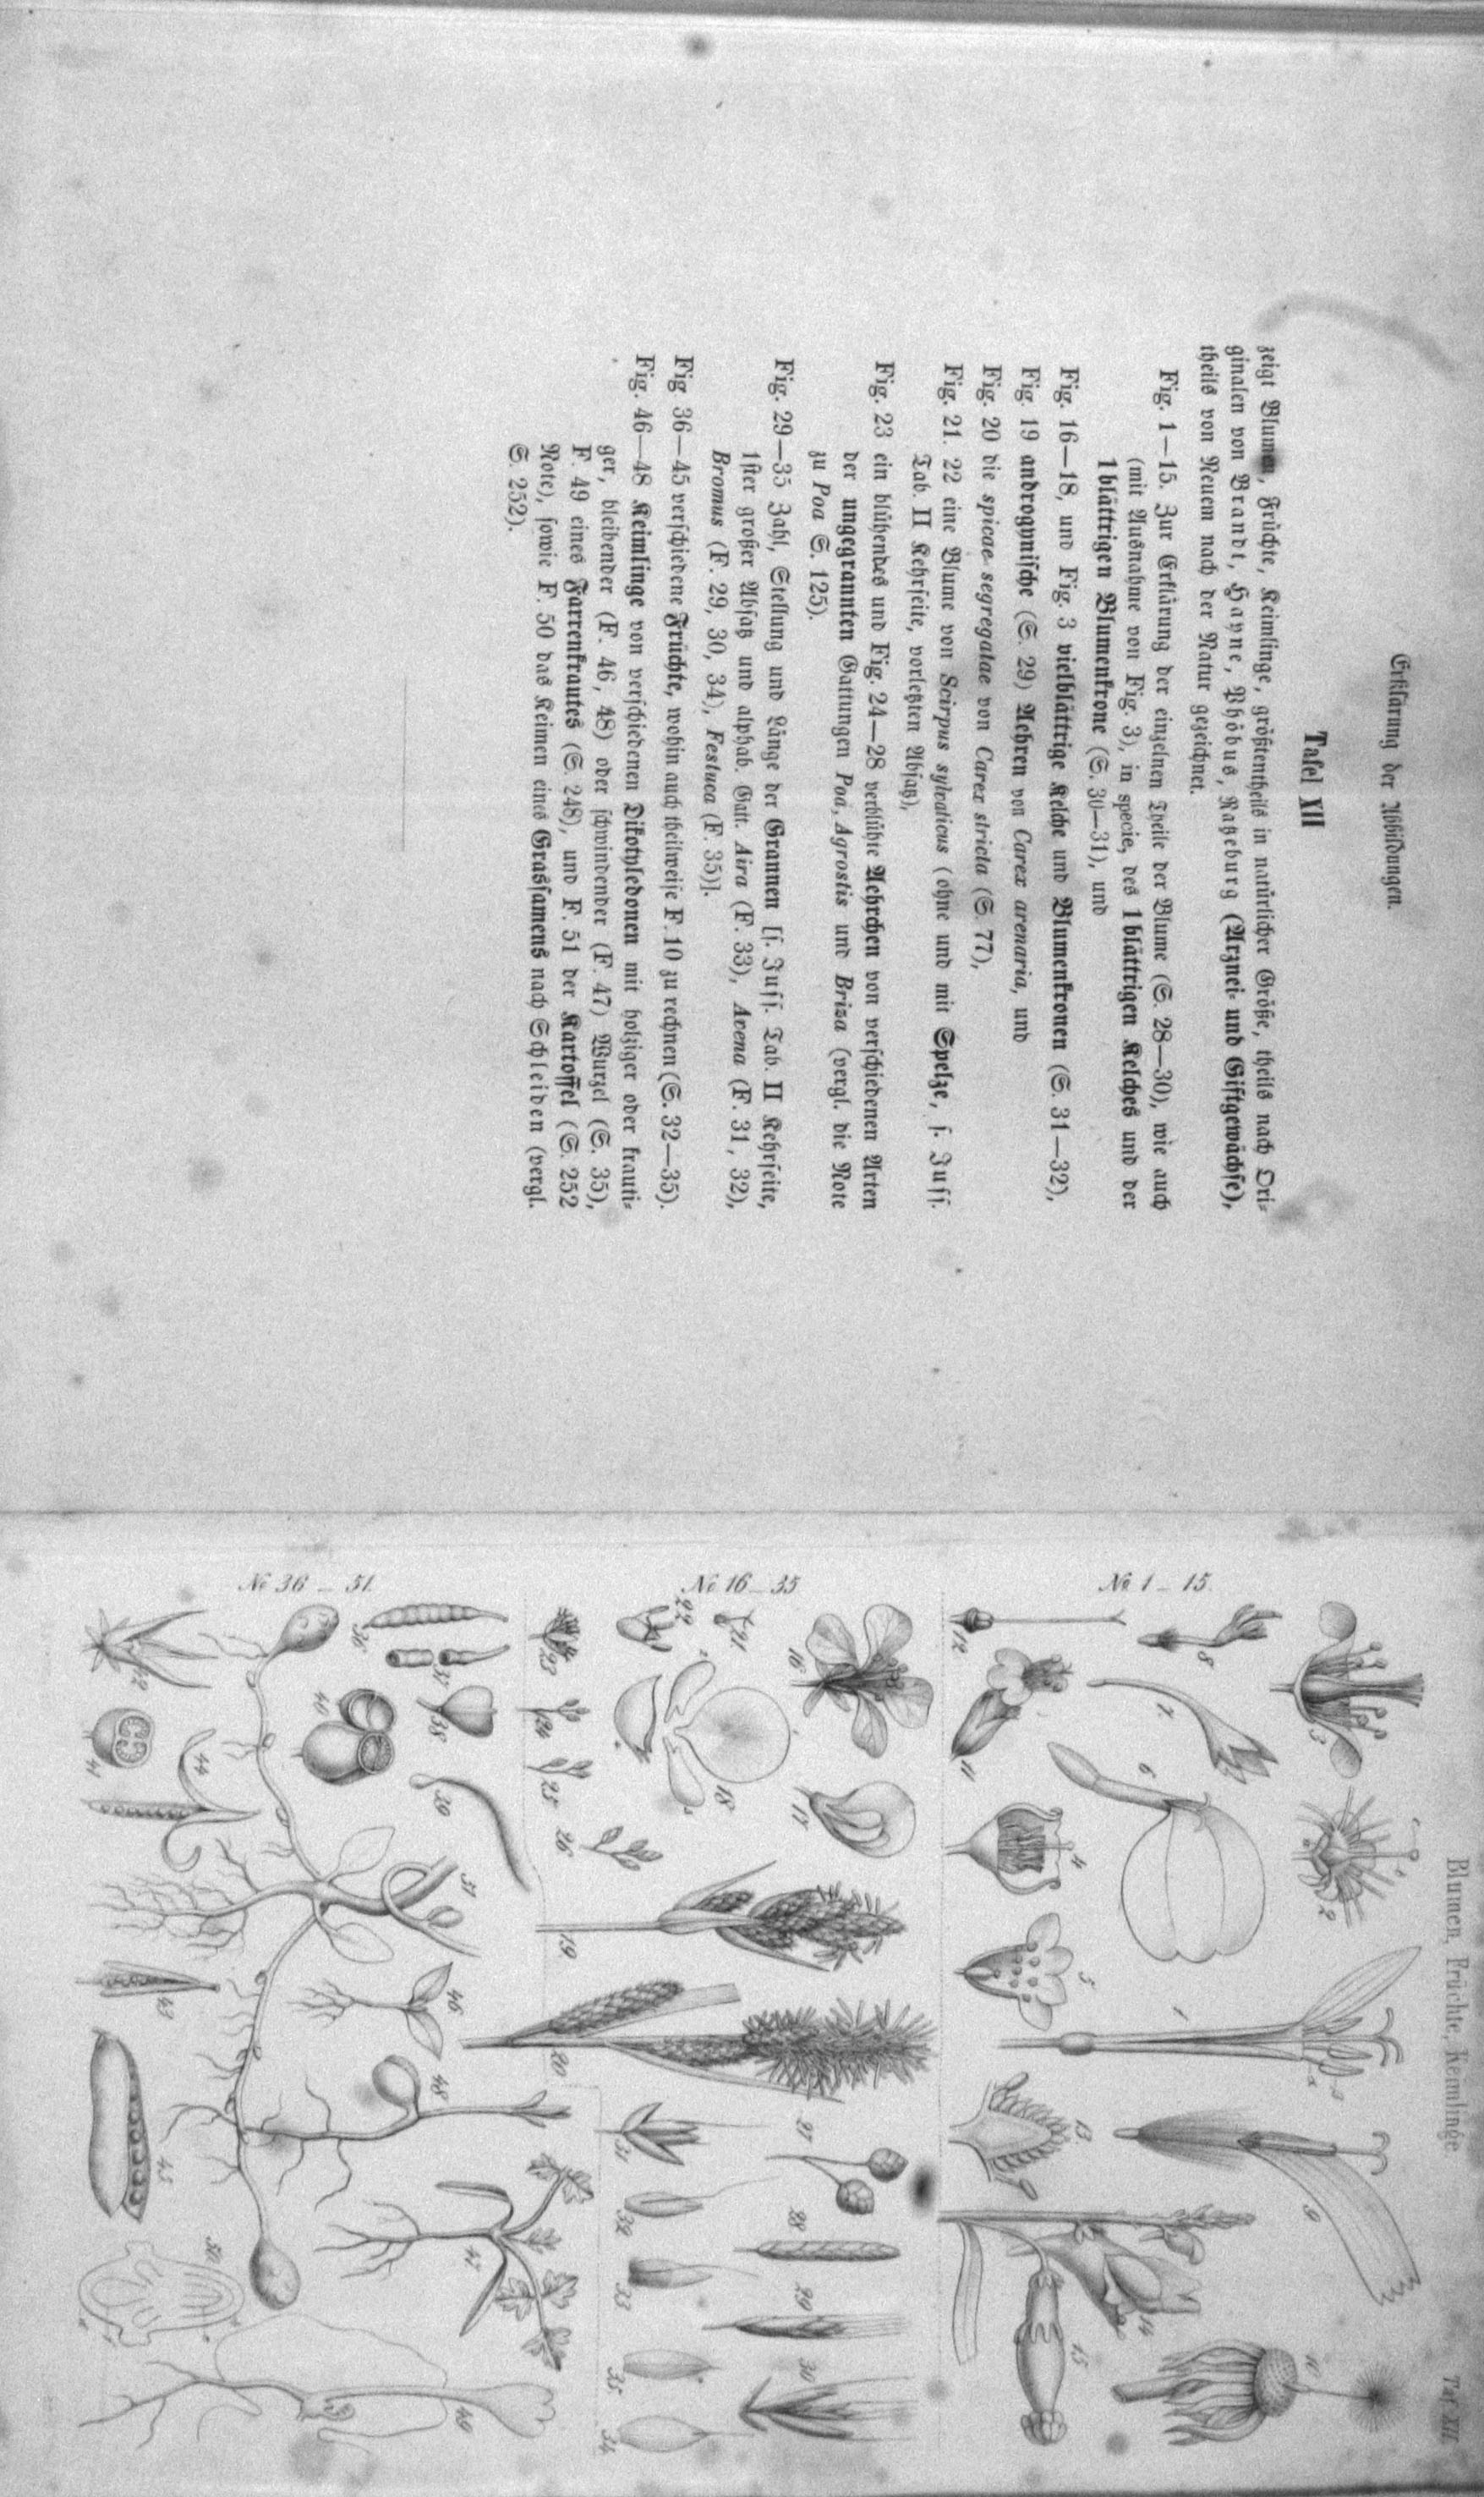 Erklärung der Abbildungen.
Tafel XII
zeigt Blumen, Früchte, Keimlinge, größtentheils in natürlicher Größe, theils nach Ori-
ginalen von Brandt, Hayne, Phöbus, Ratzeburg (Arznei- und Giftgewächse),
theils von Neuem nach der Natur gezeichnet.
Fig. 1—15. Zur Erklärung der einzelnen Theile der Blume (S. 28—30), wie auch
(mit Ausnahme von Fig. 3), in specie, des 1blättrigen Kelches und der
1blättrigen Blumenkrone (S. 30—31), und
Fig. 16—18, und Fig. 3 vielblättrige Kelche und Blumenkronen (S. 31—32),
Fig. 19 androgynische (S. 29) Aehren von Carex arenaria, und
Fig. 20 die spicae segregatae von Carex stricta (S. 77),
Fig. 21. 22 eine Blume von Scirpus sylvaticus (ohne und mit Spelze, s. Juss.
Tab. II Kehrseite, vorletzten Absatz),
Fig. 23 ein blühendes und Fig. 24—28 verblühte Aehrchen von verschiedenen Arten
der ungegrannten Gattungen Poa, Agrostis und Briza (vergl. die Note
zu Poa S. 125).
Fig. 29—35 Zahl, Stellung und Länge der Grannen [s. Juss. Tab. II Kehrseite,
1ster großer Absatz und alphab. Gatt. Aira (F. 33), Avena (F. 31, 32),
Bromus (F. 29, 30, 34), Festuca (F. 35)].
Fig 36—45 verschiedene Früchte, wohin auch theilweise F. 10 zu rechnen (S. 32—35).
Fig. 46—48 Keimlinge von verschiedenen Dikotyledonen mit holziger oder krauti-
ger, bleibender (F. 46, 48) oder schwindender (F. 47) Wurzel (S. 35),
F. 49 eines Farrenkrautes (S. 248), und F. 51 der Kartoffel (S. 252
Note), sowie F. 50 das Keimen eines Grassamens nach Schleiden (vergl.
S. 252).
Blumen, Früchte, Keimlinge.
Taf. XII.
No 1 — 15.
3
2
1
9
10
8
7
6
4
5
13
14
15
12
11
No 16 — 35
16
17
18
21
22
23
24
25
26
19
20
27
28
29
30
31
32
33
35
34
No 36 — 51.
36
37
38
39
40
51
46
48
47
49
42
41
44
43
45
50